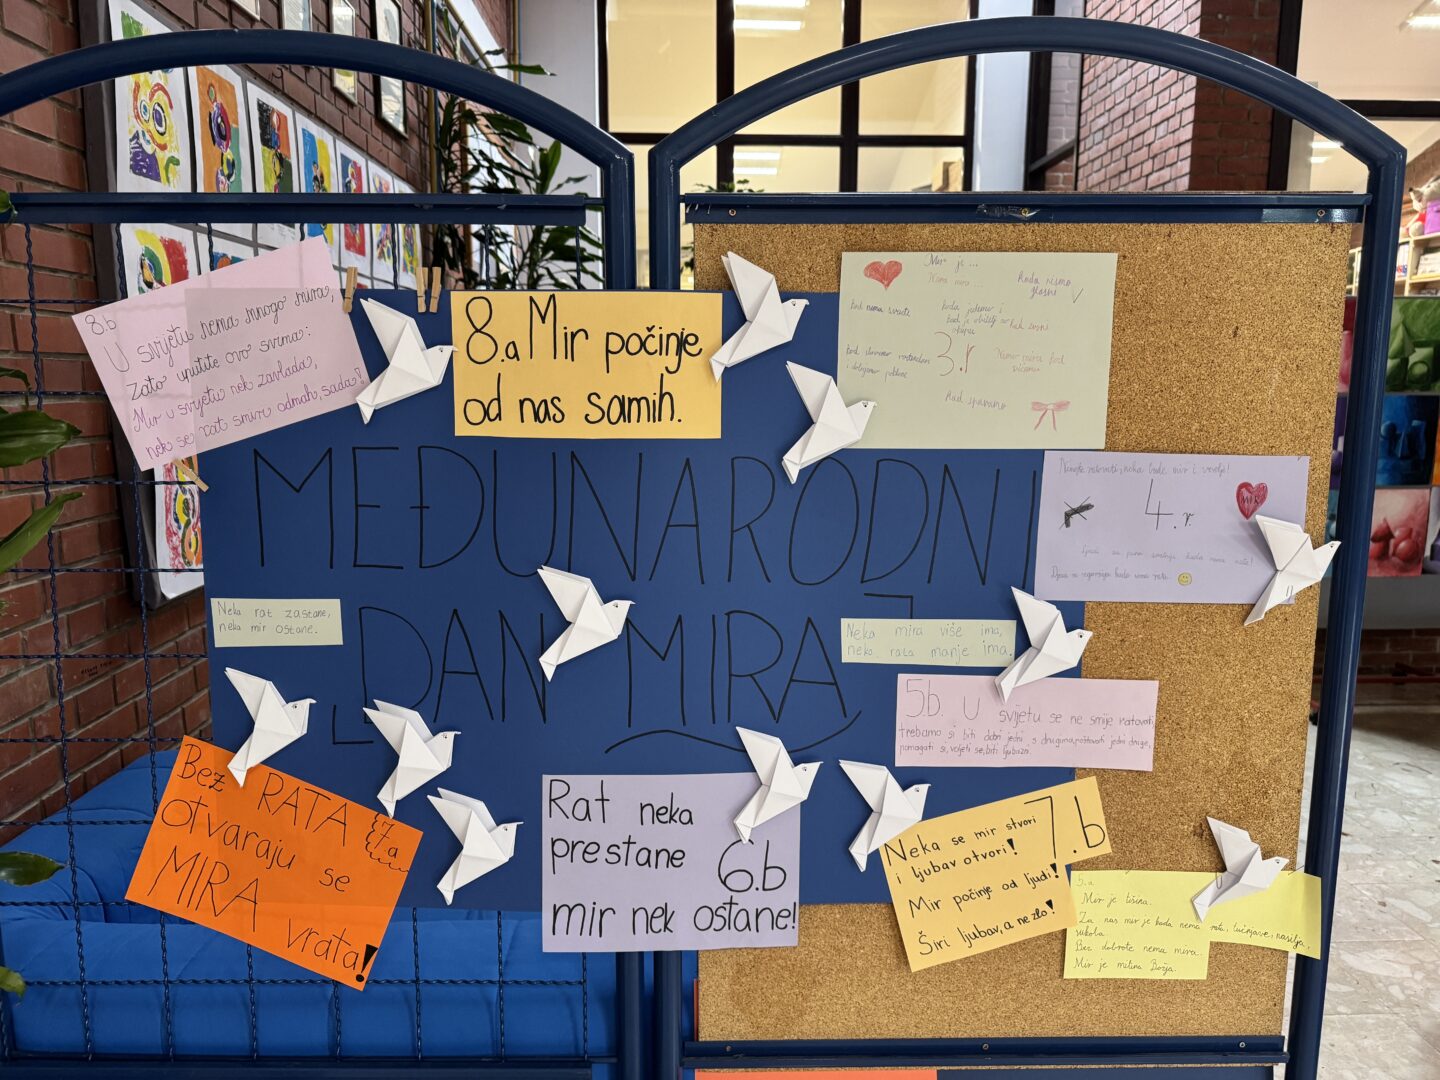 8.b
U svijetu nema mnogo mira,
zato uputite ovo svima:
Mir u svijetu nek zavlada,
nek se rat smiri odmah, sada!
8.a Mir počinje
od nas samih.
Mir je ...
Nema mira ...
Kada nismo
glasni
3.r
Kad spavamo
MEĐUNARODNI
DAN MIRA
Nemojte ratovati, neka bude mir i veselje!
MIR
4.r.
Ljudi su puni sretniji kada nema rata!
Neka rat zastane,
neka mir ostane.
Neka mira više ima,
neka rata manje ima.
5.b. U svijetu se ne smije ratovati,
trebamo si biti dobri jedni s drugima, poštovati jedni druge,
pomagati si, voljeti se, biti ljubazni.
Bez RATA 7.a
otvaraju se
MIRA
vrata!
Rat neka
prestane 6.b
mir nek ostane!
7.b
Neka se mir stvori
i ljubav otvori!
Mir počinje od ljudi!
Širi ljubav, a ne zlo!
5.a
Mir je tišina.
Za nas mir je kada nema rata, tučnjave, nasilja,
sukoba.
Bez dobrote nema mira.
Mir je milina Božja.